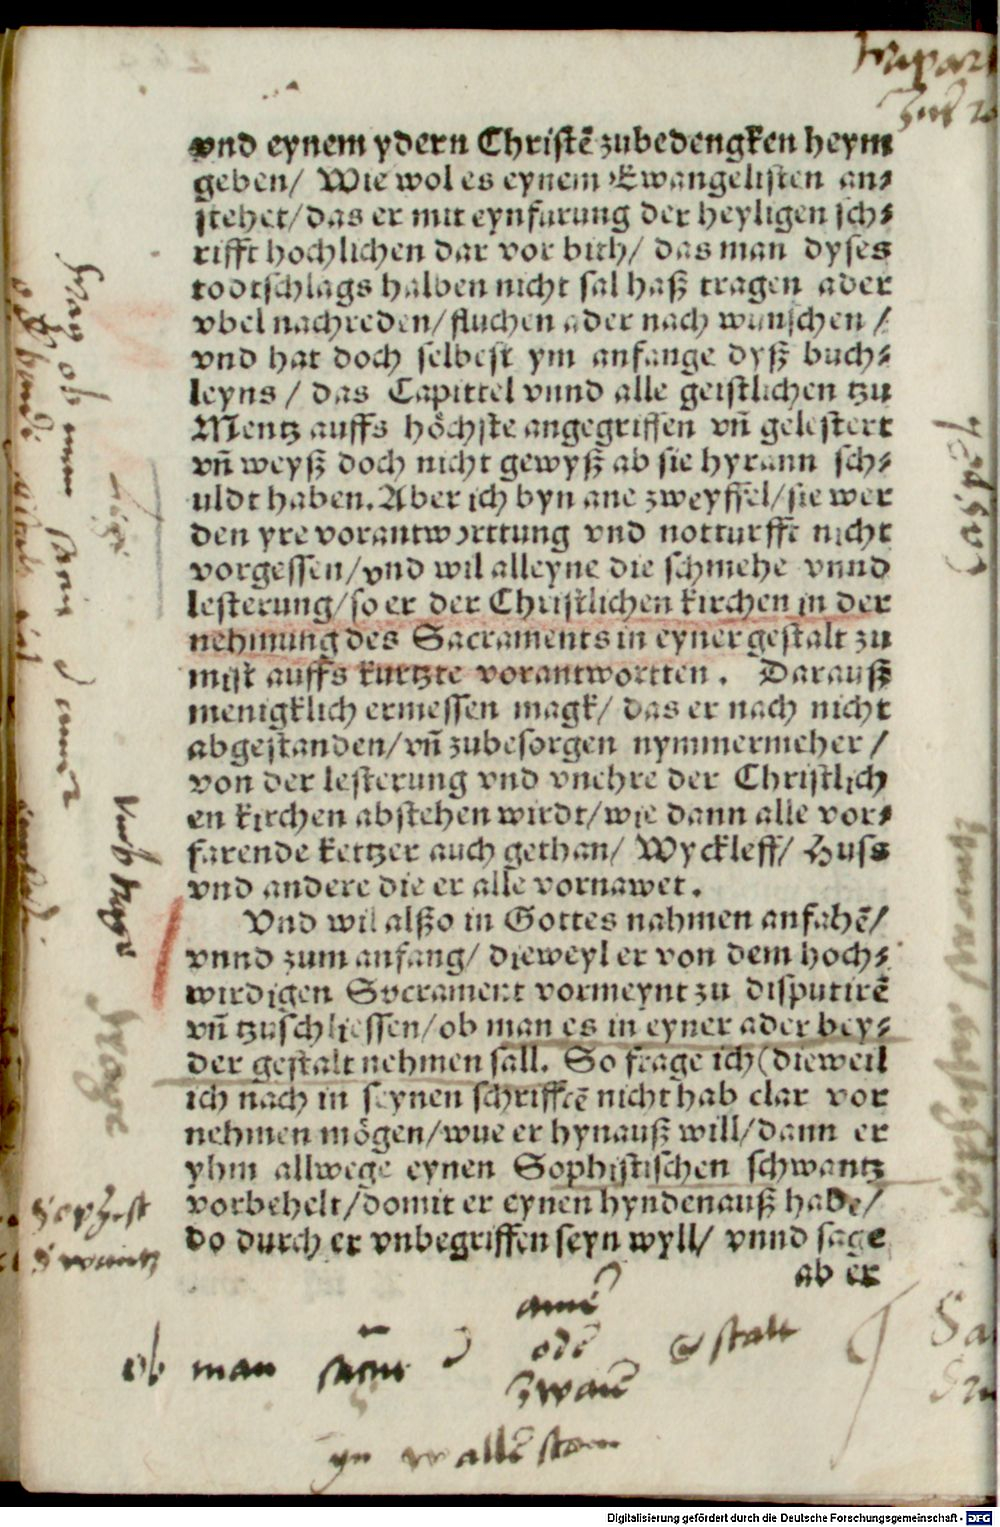 vnd eynem ydern Christē zubedengken heym
geben/ Wie wol es eynem Ewangelisten an⸗
stehet/das er mit eynfurung der heyligen sch⸗
rifft hochlichen dar vor bith/ das man dyses
todtschlags halben nicht sal haß tragen ader
vbel nachreden/ fluchen ader nach wunschen /
vnd hat doch selbest ym anfange dyß buch⸗
leyns / das Capittel vnnd alle geistlichen tzu
Mentz auffs höchste angegriffen vn̄ gelestert
vn̄ weyß doch nicht gewyß ab sie hyrann sch⸗
uldt haben. Aber ich byn ane zweyffel/ sie wer
den yre vorantworttung vnd notturfft nicht
vorgessen/vnd wil alleyne die schmehe vnnd
lesterung/so er der Christlichen kirchen in der
nehmung des Sacraments in eyner gestalt zu
mist auffs kurtzte vorantwortten. Darauß
menigklich ermessen magk/ das er nach nicht
abgestanden/vn̄ zubesorgen nymmermeher /
von der lesterung vnd vnehre der Christlich
en kirchen abstehen wirdt/wie dann alle vor⸗
farende kettzer auch gethan/ Wyckleff/ Huss
vnd andere die er alle vornawet.
Vnd wil alßo in Gottes nahmen anfahē/
vnnd zum anfang/ dieweyl er von dem hoch⸗
wirdigen Socrament vormeynt zu disputirē
vn̄ tzuschliessen/ob man es in eyner ader bey⸗
der gestalt nehmen sall. So frage ich (dieweil
ich nach in seynen schrifftē nicht hab clar vor
nehmen mögen/wue er hynauß will/dann er
yhm allwege eynen Sophistischen schwantz
vorbehelt/domit er eynen hyndenauß habe/
do durch er vnbegriffen seyn wyll/ vnnd sage
ab er
Sophist
Swantz
ob man
gstalt
Digitalisierung gefördert durch die Deutsche Forschungsgemeinschaft - DFG